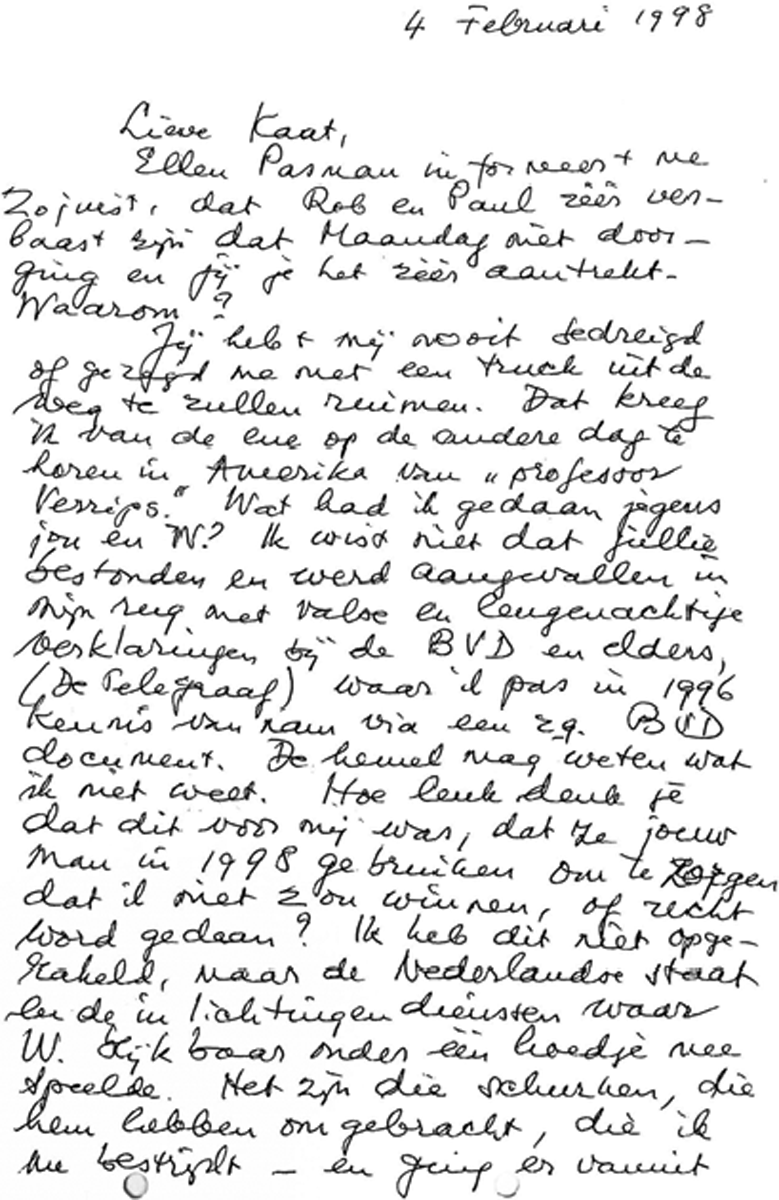 4 Februari 1998
Lieve Kaat,
Ellen Pasman informeert me
zojuist, dat Rob en Paul zéér ver-
baast zijn dat Maandag niet door-
ging en jij je het zéér aantrekt.
Waarom?
Jij hebt mij nooit bedreigd
of gezegd me met een truck uit de
weg te zullen ruimen. Dat kreeg
ik van de ene op de andere dag te
horen in Amerika van "profesoor
Verrips." Wat had ik gedaan jegens
jou en W? Ik wist niet dat jullie
bestonden en werd aangevallen in
mijn rug met valse en leugenachtige
verklaringen bij de BVD en elders,
(De Telegraaf) waar ik pas in 1996
kennis van nam via een zg. BVD
document. De hemel mag weten wat
ik niet weet. Hoe leuk denk je
dat dit voor mij was, dat ze jouw
man in 1998 gebruiken om te zorgen
dat ik niet zou winnen, of recht
word gedaan? Ik heb dit niet opge-
rakeld, maar de Nederlandse staat
en de inlichtingendiensten waar
W. blijkbaar onder één hoedje mee
speelde. Het zijn die schurken, die
hem hebben omgebracht, die ik
nu bestrijdt - en ging er vanuit